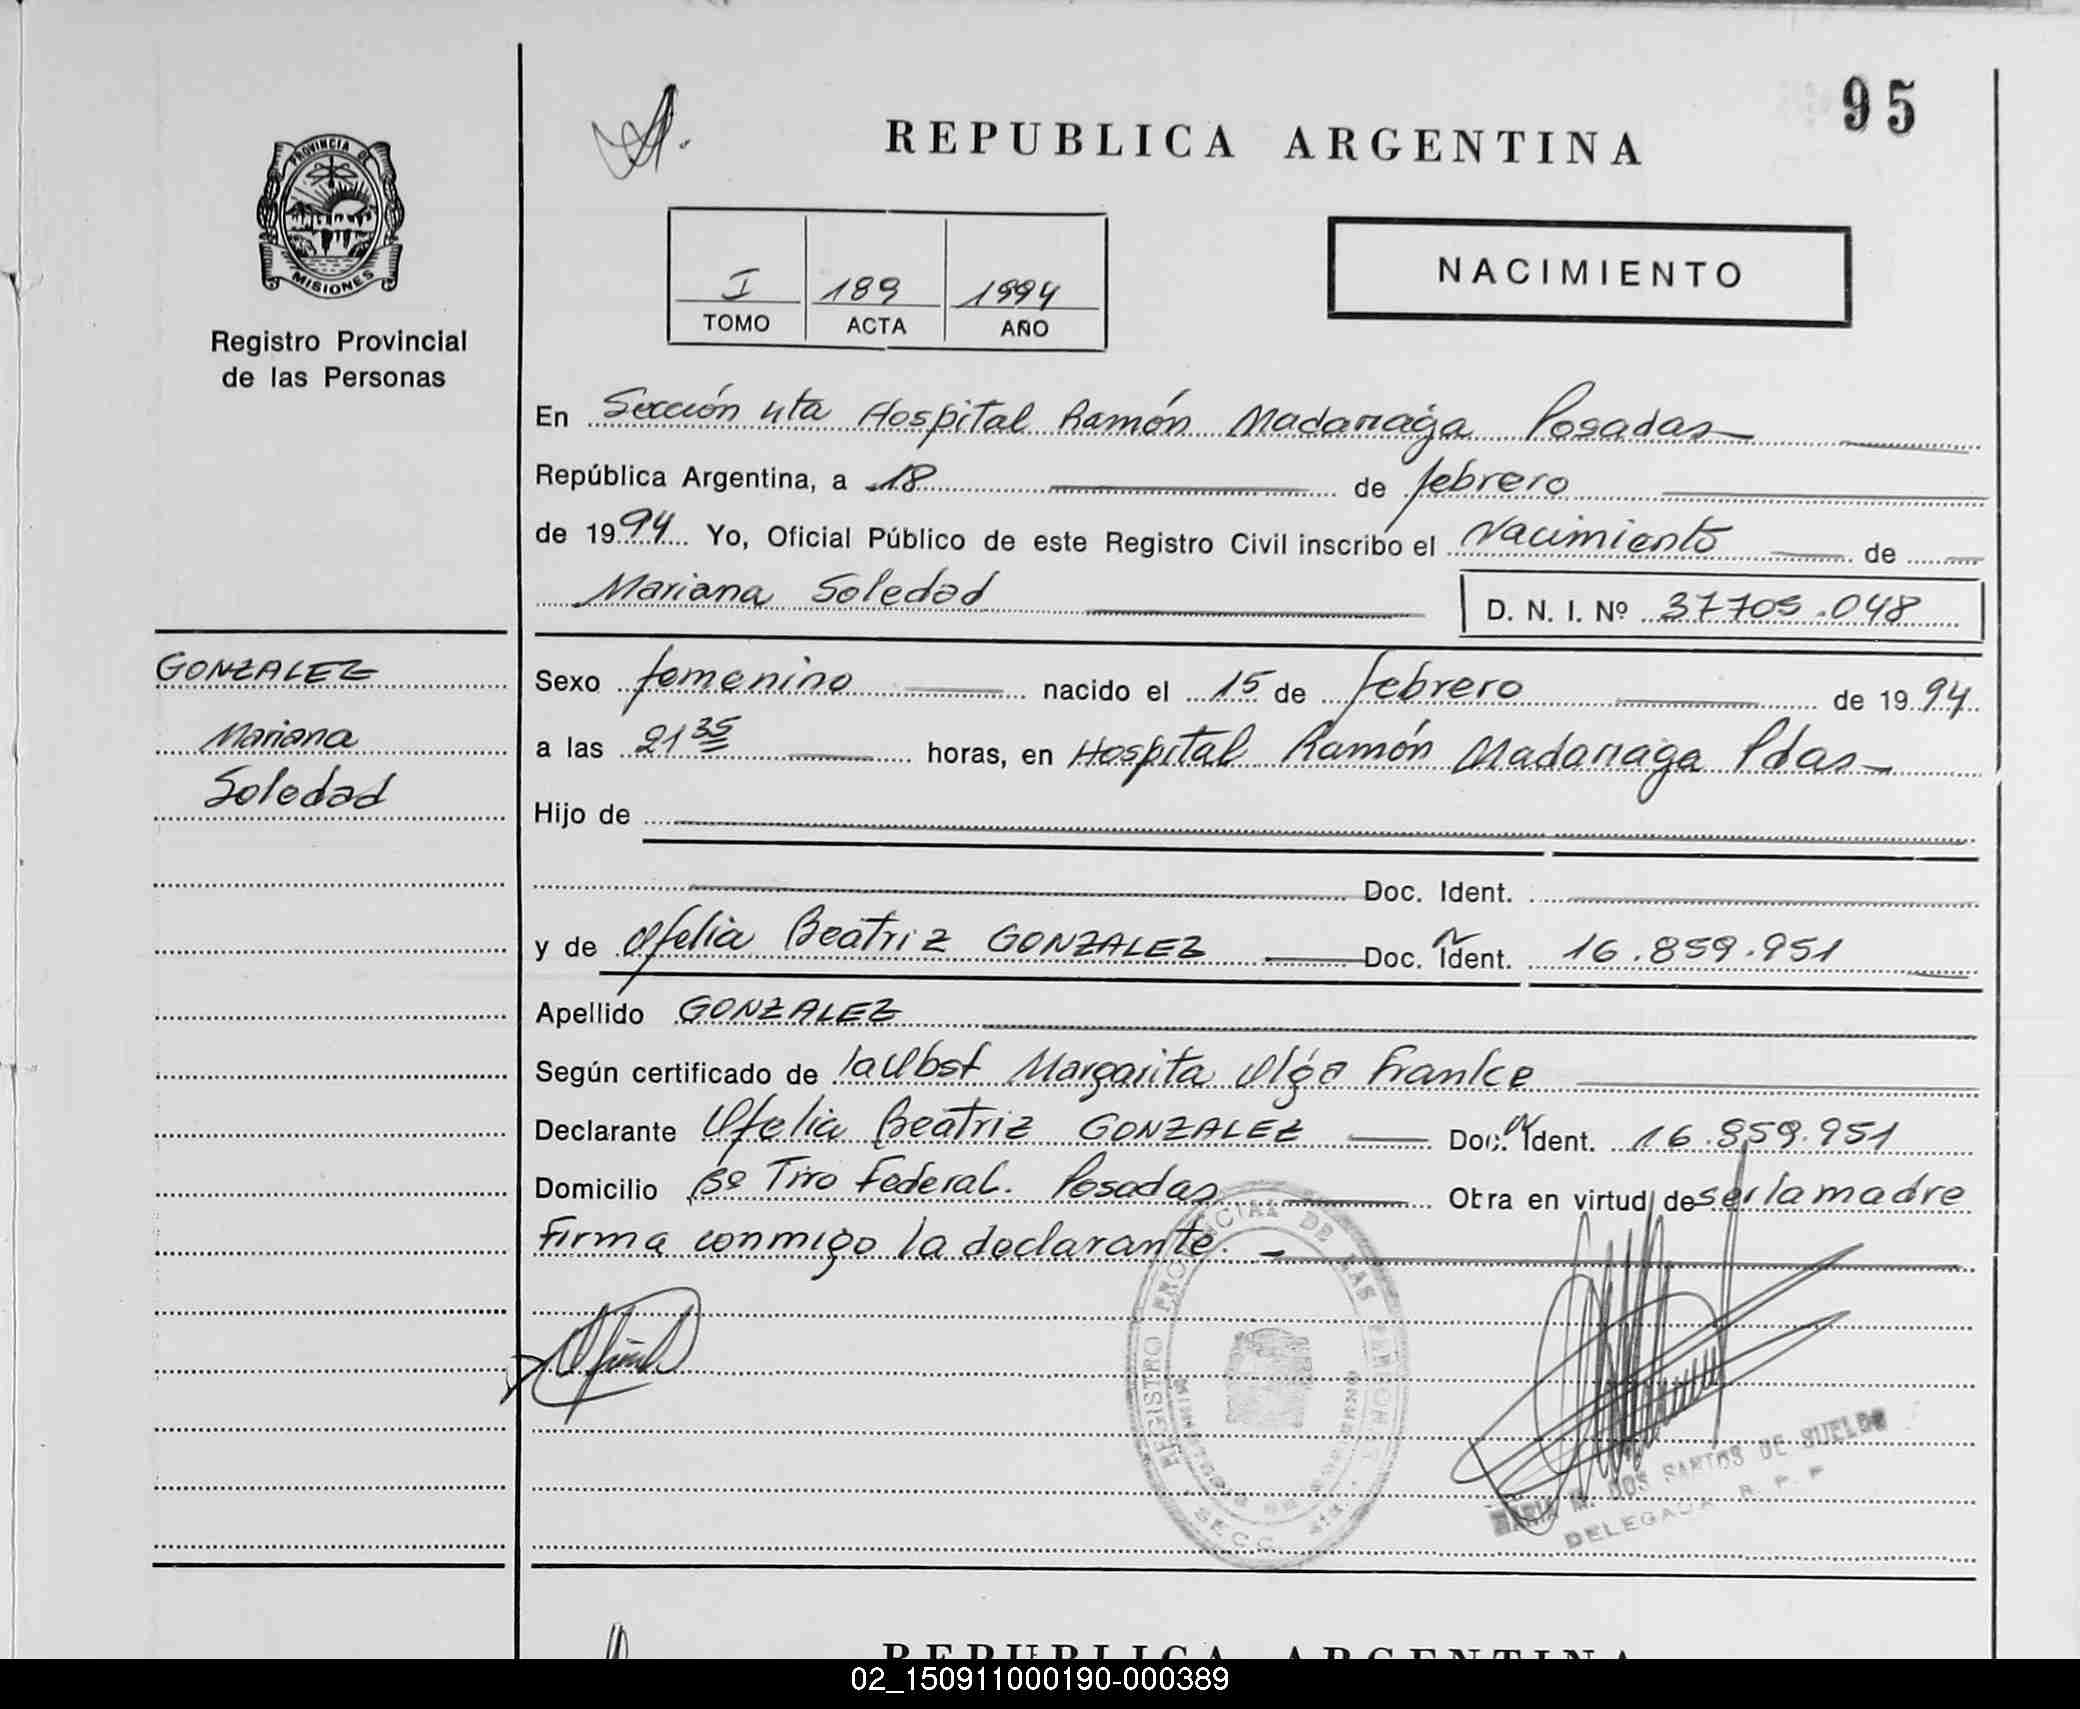 95
REPUBLICA ARGENTINA
PROVINCIA DE
MISIONES
Registro Provincial
de las Personas
I 189 1994
TOMO ACTA AÑO
NACIMIENTO
En Sección 4ta Hospital Ramón Madariaga Posadas
República Argentina, a 18 de febrero
de 1994 Yo, Oficial Público de este Registro Civil inscribo el Nacimiento de
Mariana Soledad D. N. I. Nº 37705.048
GONZALEZ
Mariana
Soledad
Sexo femenino nacido el 15 de febrero de 1994
a las 21 35 horas, en Hospital Ramón Madariaga Pdas
Hijo de
Doc. Ident.
y de Ofelia Beatriz GONZALEZ Doc. Ident. 16.859.951
Apellido GONZALEZ
Según certificado de la Obst Margarita Olga Franke
Declarante Ofelia Beatriz GONZALEZ Doc. Ident. 16.859.951
Domicilio Bº Tiro Federal. Posadas Obra en virtud de ser la madre
Firma conmigo la declarante.
REGISTRO PROVINCIAL DE LAS PERSONAS
SECC. 4ta.
MARIA M. DOS SANTOS DE SUELDO
DELEGADA R. P. P
REPUBLICA ARGENTINA
02_150911000190-000389